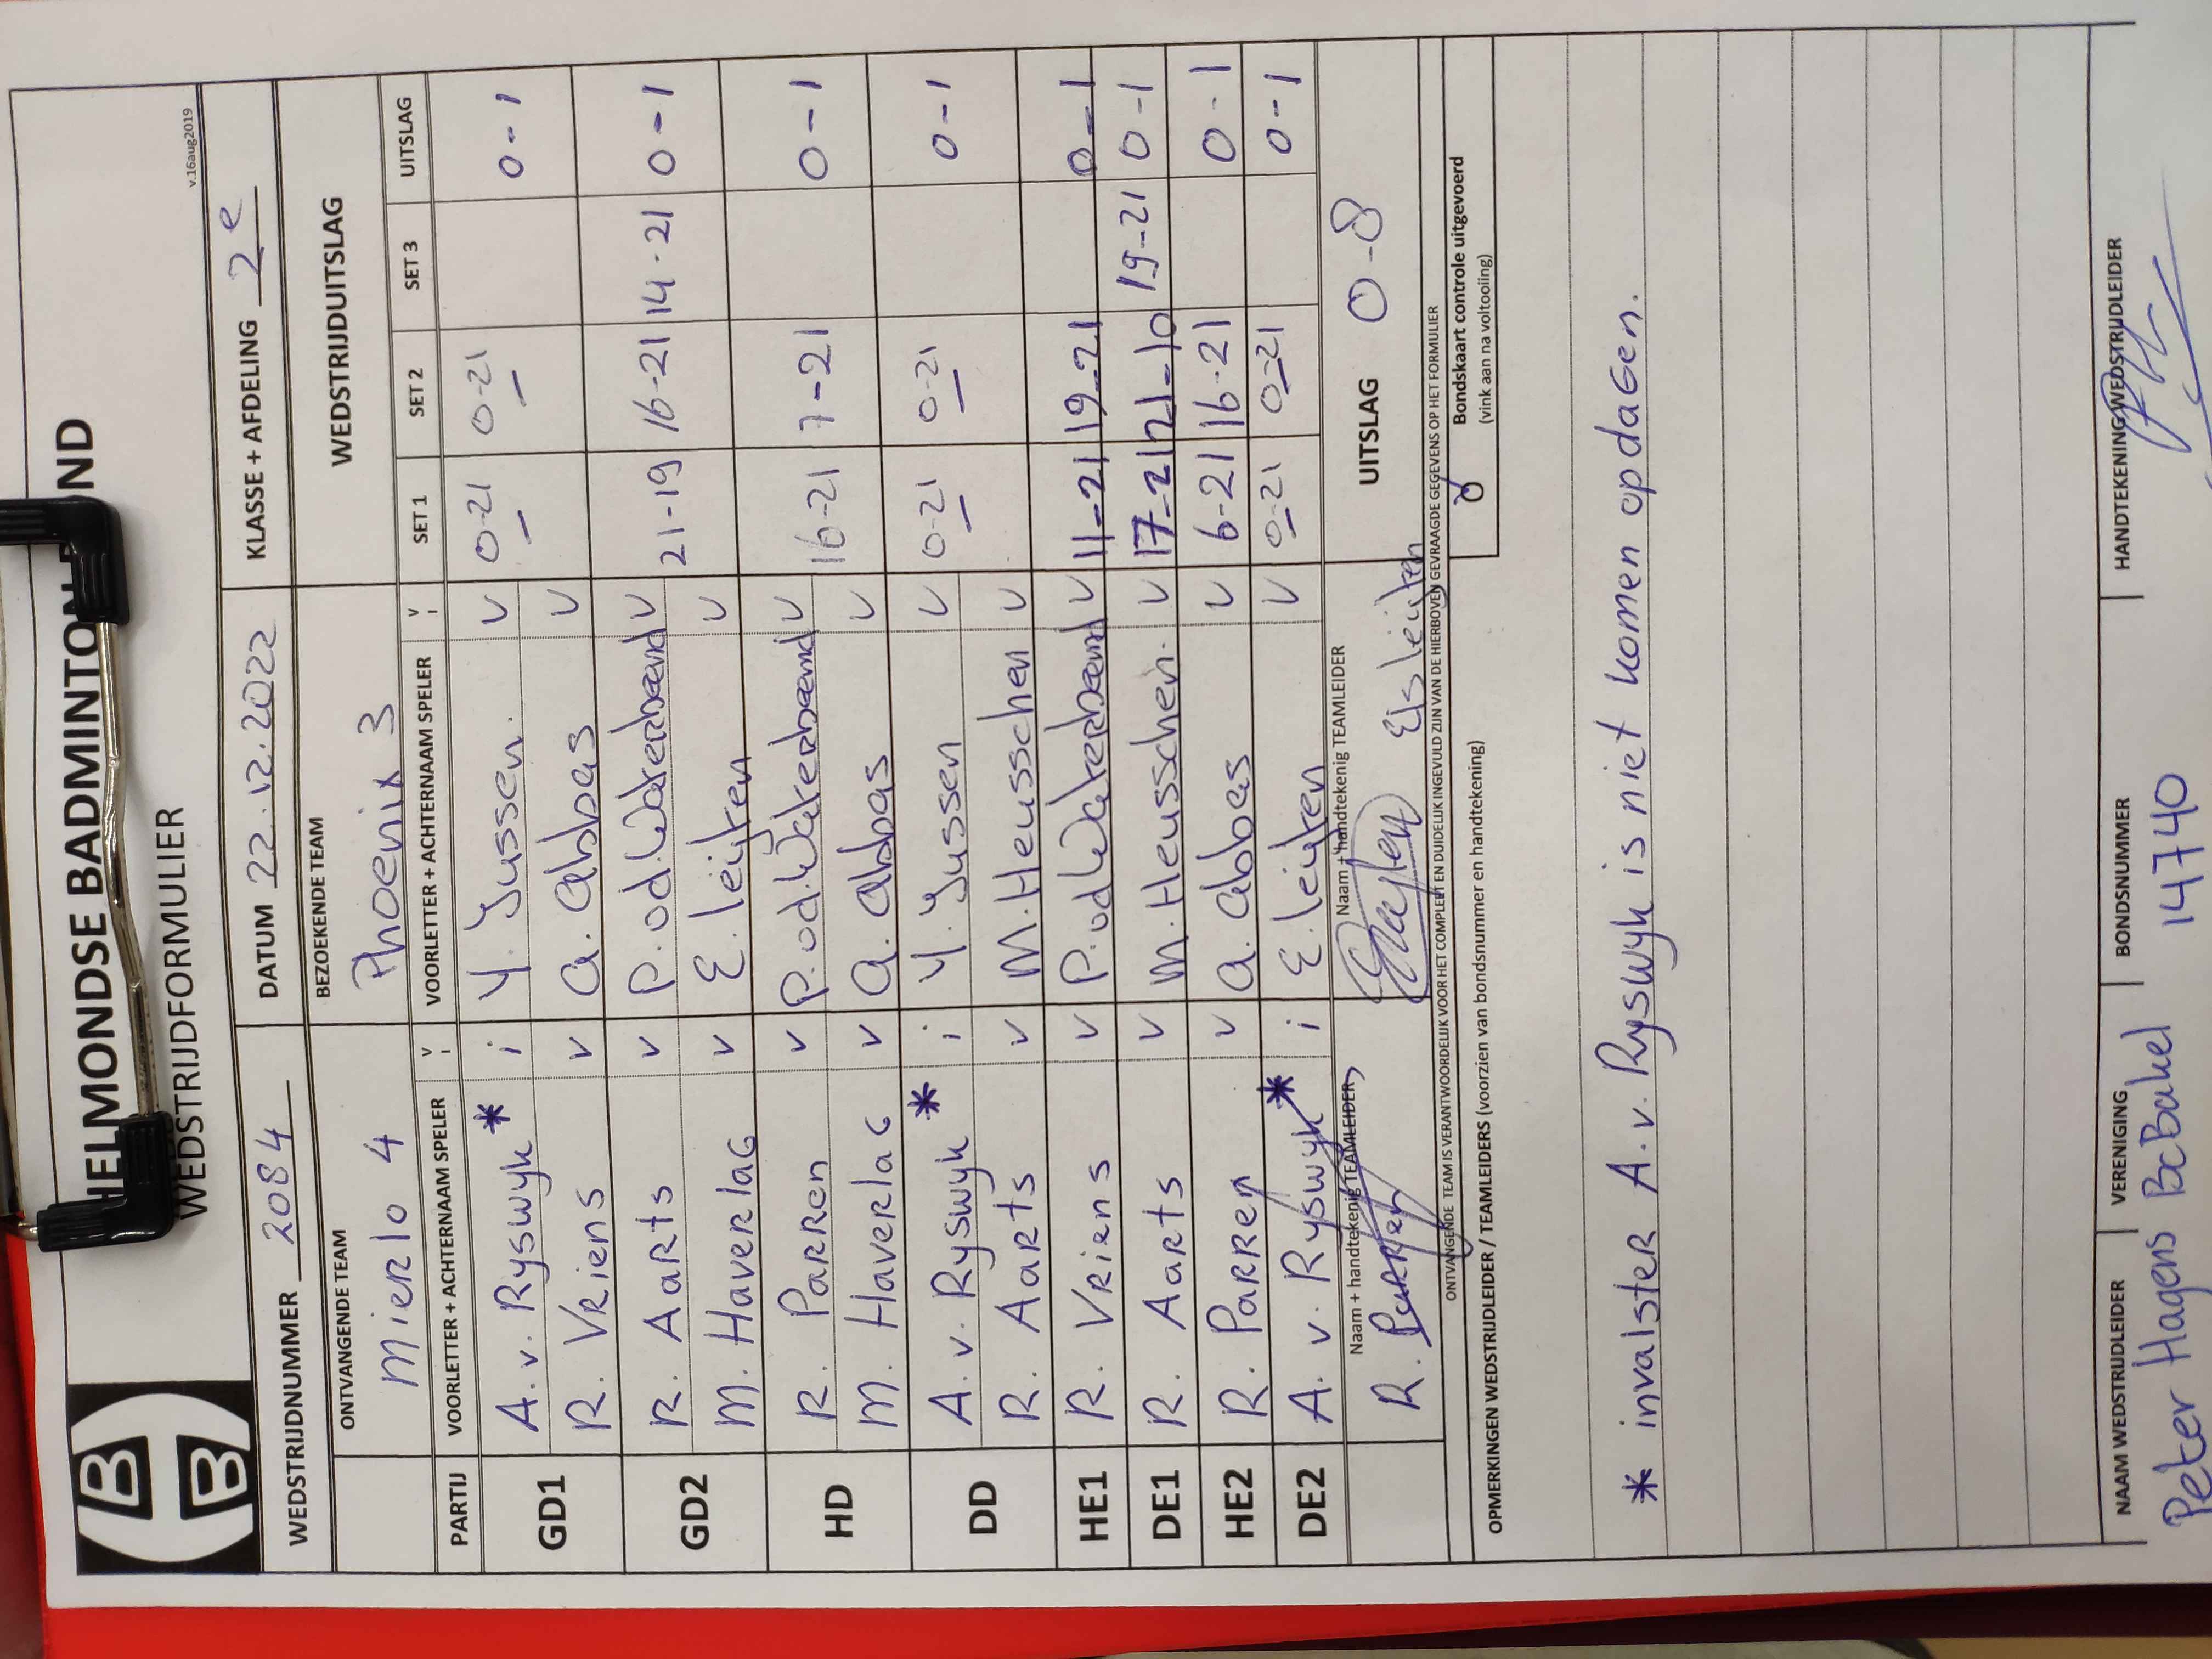 HELMONDSE BADMINTON BOND
WEDSTRIJDFORMULIER
v.16aug2019
WEDSTRIJDNUMMER 2084 DATUM 22.12.2022 KLASSE + AFDELING 2e
ONTVANGENDE TEAM BEZOEKENDE TEAM WEDSTRIJDUITSLAG
Mierlo 4 Phoenix 3
PARTIJ VOORLETTER + ACHTERNAAM SPELER V i VOORLETTER + ACHTERNAAM SPELER V i SET 1 SET 2 SET 3 UITSLAG
GD1 A. v. Ryswyk * i Y. Jussen. v 0-21 0-21 0-1
R. Vriens v a. abbas v
GD2 R. Aarts v P. vd. Waterbeemd v 21-19 16-21 14-21 0-1
M. Haverlag v E. leijten v
HD R. Parren v P. vd. Waterbeemd v 16-21 7-21 0-1
M. Haverlag v a. abbas v
DD A. v. Ryswyk * i Y. Jussen v 0-21 0-21 0-1
R. Aarts v M. Heusschen v
HE1 R. Vriens v P. vd Waterbeemd v 11-21 19-21 0-1
DE1 R. Aarts v M. Heusschen. v 17-21 21-10 19-21 0-1
HE2 R. Parren v a. abbas v 6-21 16-21 0-1
DE2 A. v. Ryswyk * i E. leijten v 0-21 0-21 0-1
Naam + handtekenig TEAMLEIDER Naam + handtekenig TEAMLEIDER UITSLAG 0-8
R. Parren Els leijten
ONTVANGENDE TEAM IS VERANTWOORDELIJK VOOR HET COMPLEET EN DUIDELIJK INGEVULD ZIJN VAN DE HIERBOVEN GEVRAAGDE GEGEVENS OP HET FORMULIER
OPMERKINGEN WEDSTRIJDLEIDER / TEAMLEIDERS (voorzien van bondsnummer en handtekening)
Bondskaart controle uitgevoerd
(vink aan na voltooiing)
* invalster A. v. Ryswyk is niet komen opdagen.
NAAM WEDSTRIJDLEIDER VERENIGING BONDSNUMMER HANDTEKENING WEDSTRIJDLEIDER
Peter Hagens BC Bakel 14740